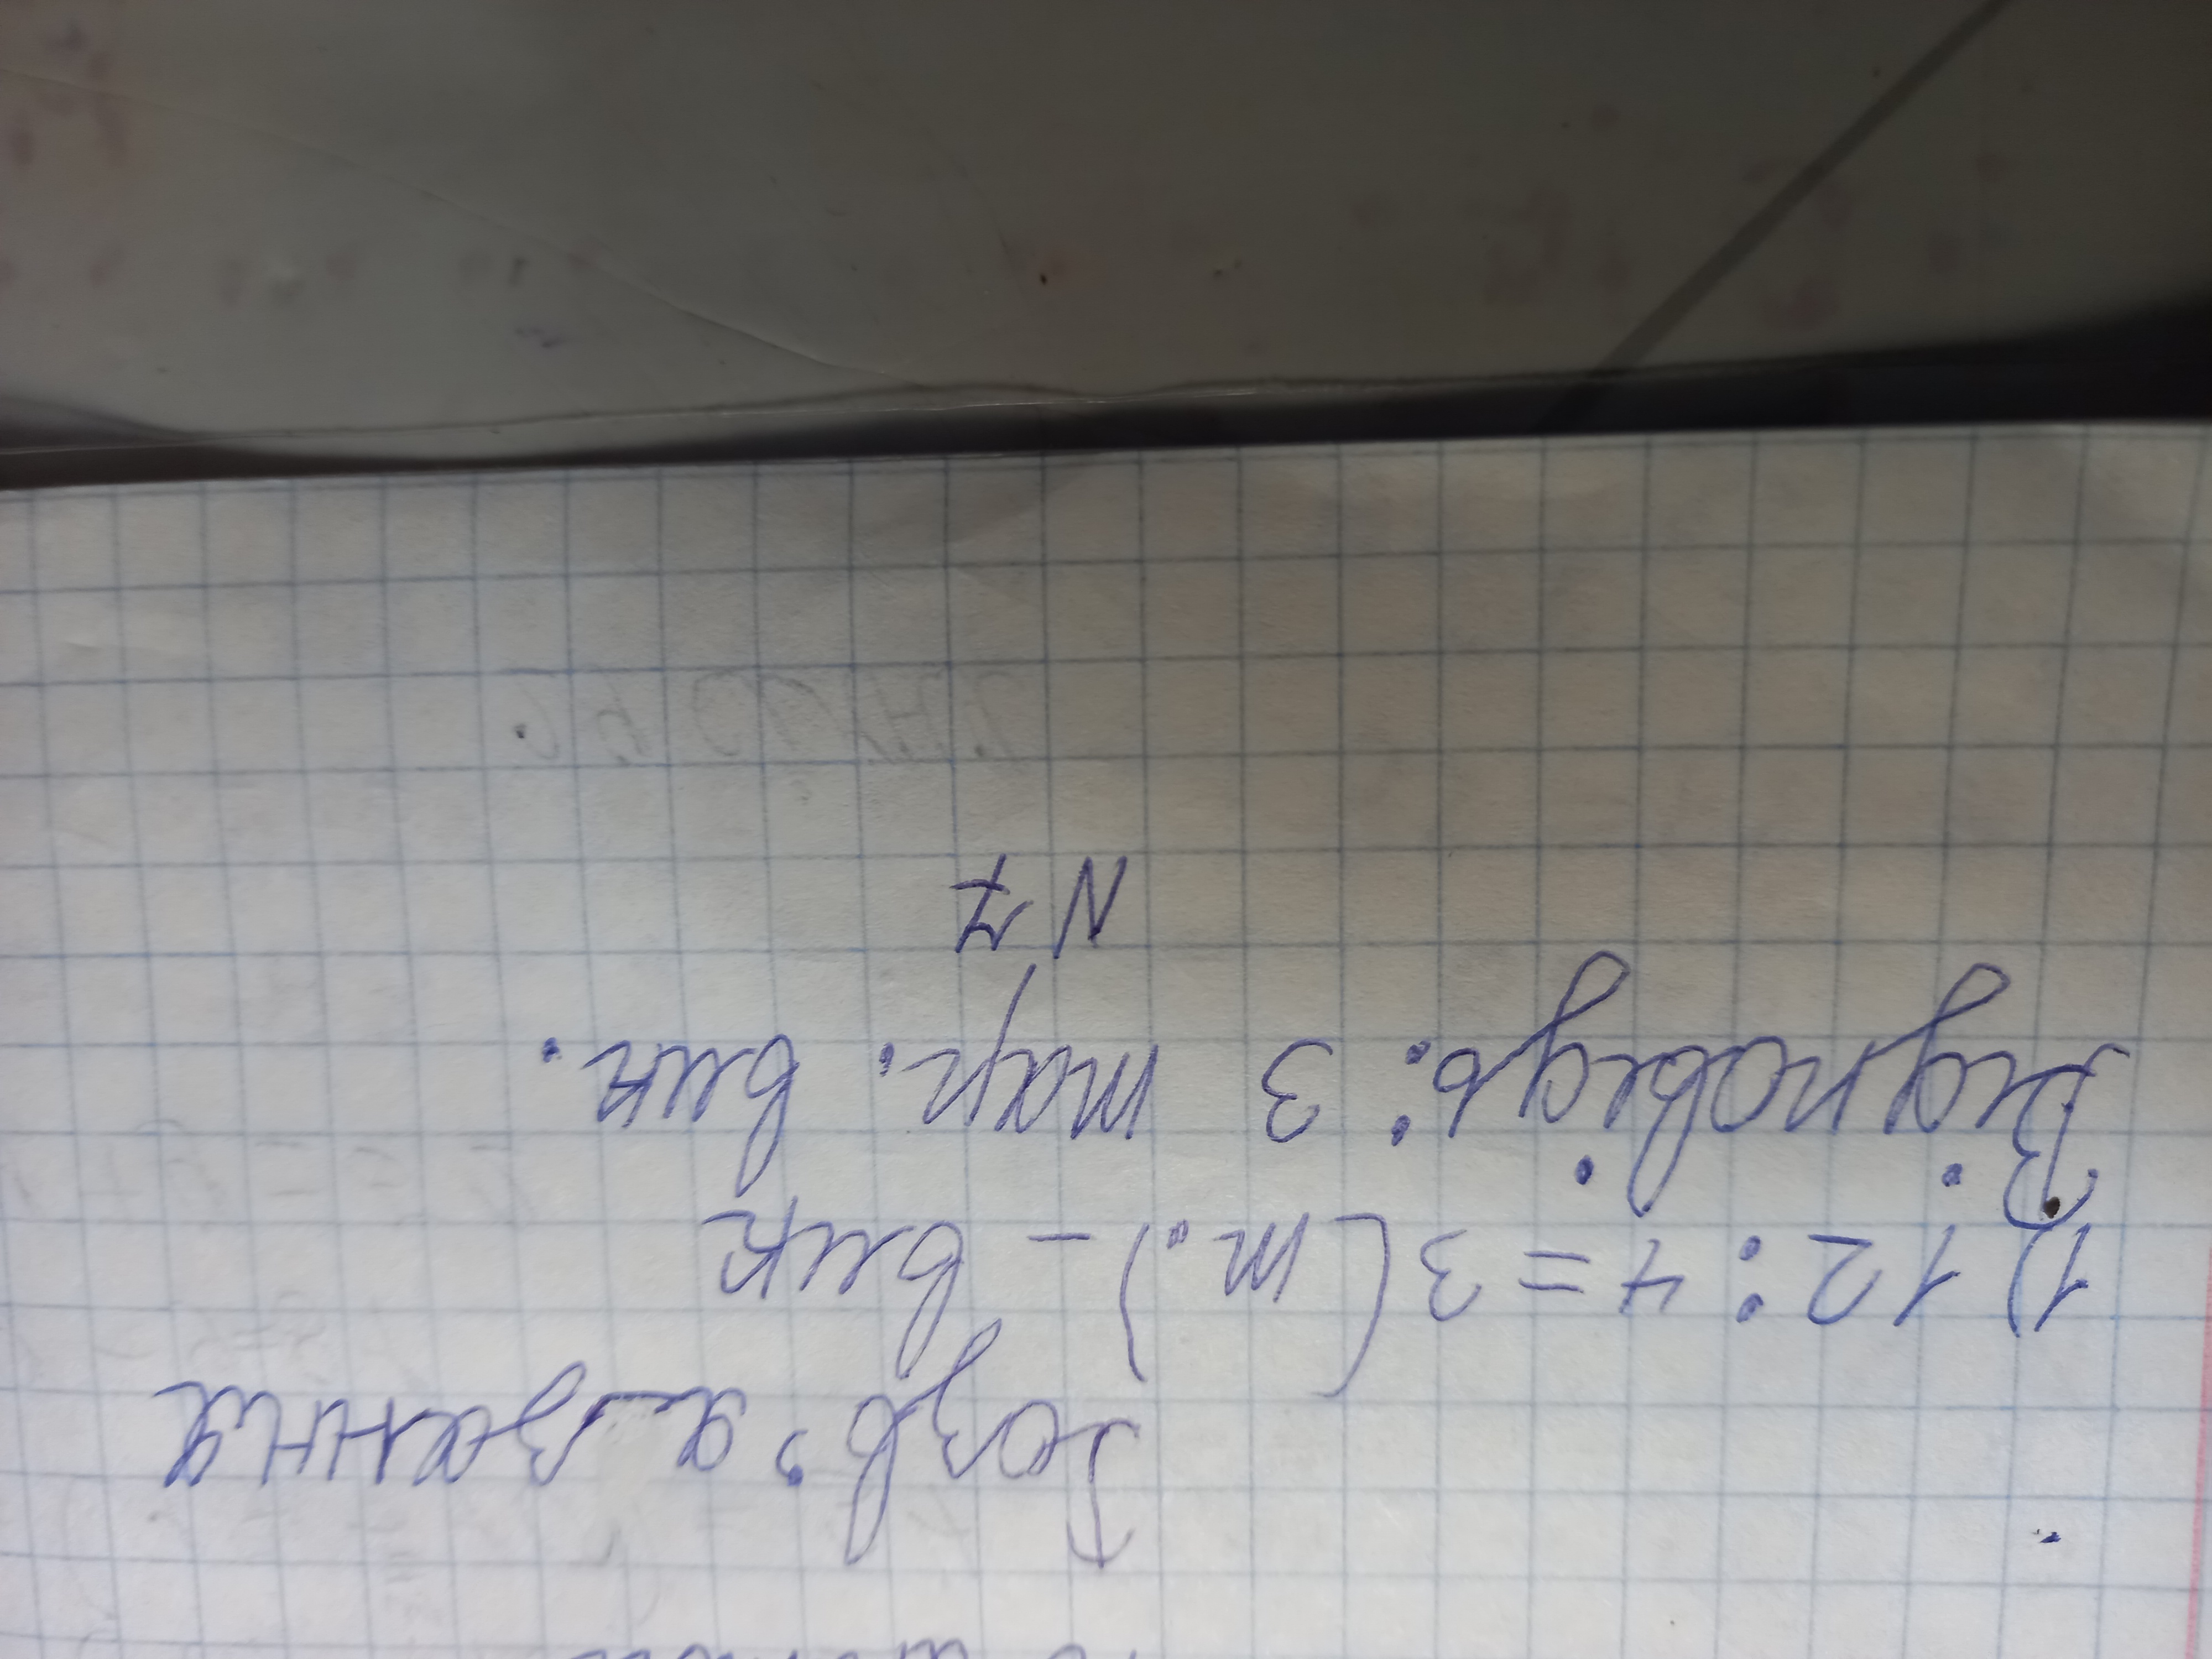 Розв'язання
1) 12 : 4 = 3 (т.) - вик
Відповідь: 3 тар. вик.
N 7